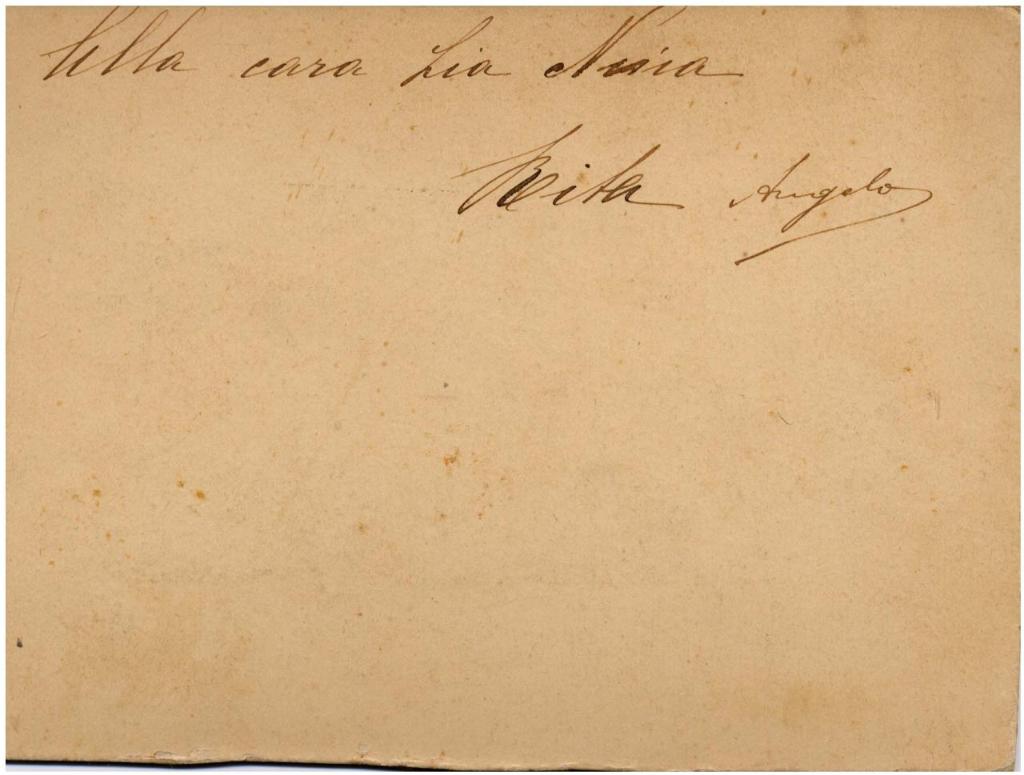 Alla cara Zia Nisia
Rita Angelo